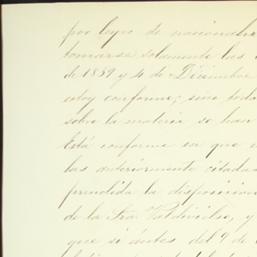 por leyes de nacionali
tomarse solamente las
de 1839 y 4 de Diciembre
estoy conforme; sino toda
sobre la materia se han
Está conforme en que
las anteriormente citadas
prendida la disposicion
de la Sra Valdivielso, y
que si ántes del 9 de